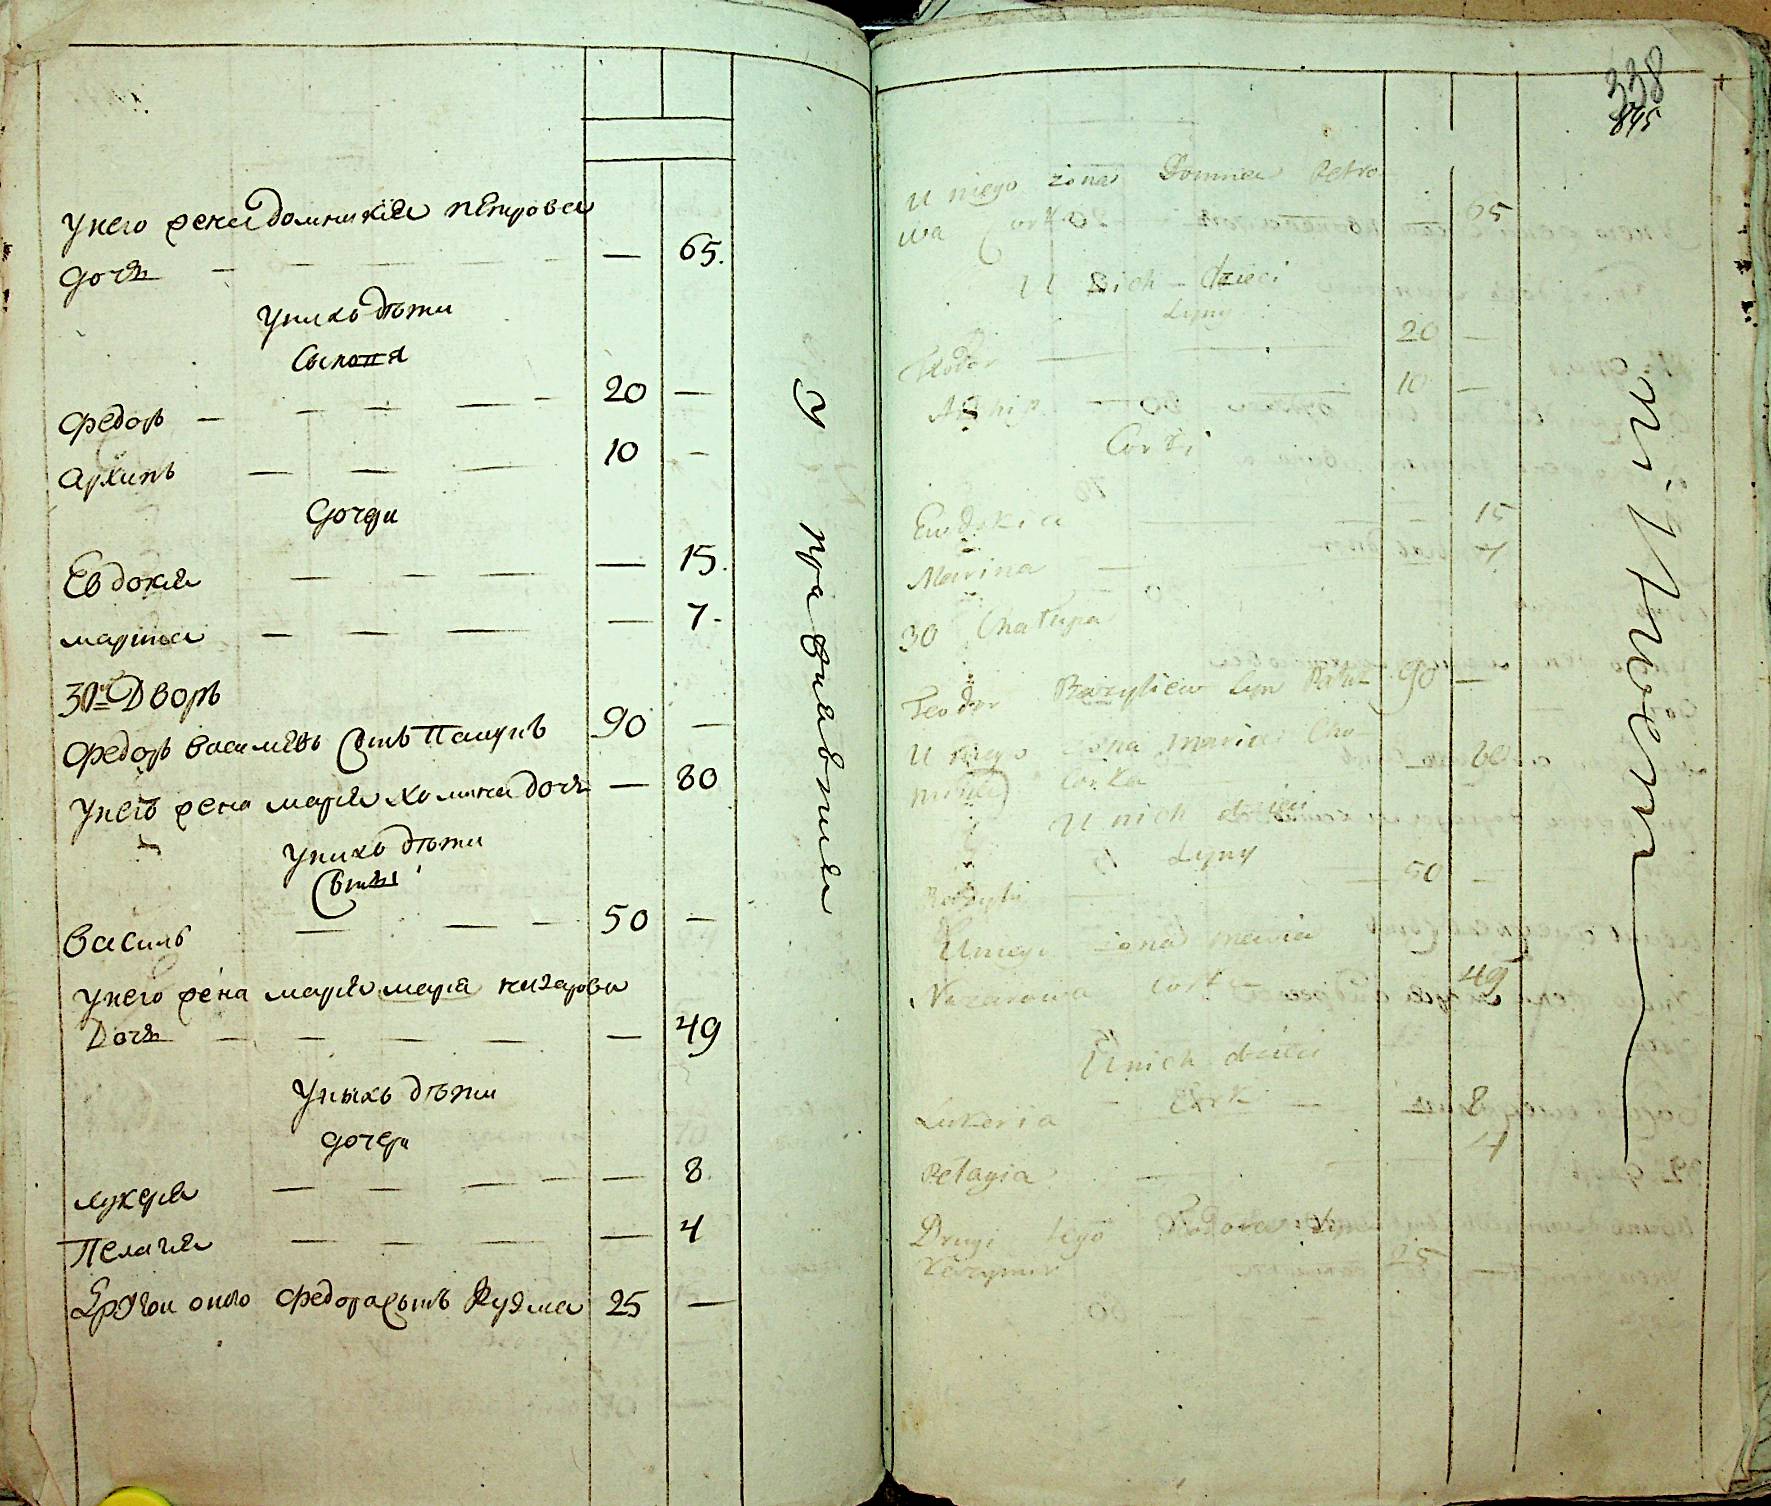 У него жена Домникия Петрова
дочь — — — — — — 65.
У нихъ дѣти
Сыновя
Федоръ — — — — — 20 —
Архипъ — — — 10 —
Дочери
Евдокия — — — — 15.
Марина — — — — 7.
30й Дворъ
Федоръ Василиевъ Сынъ 90 —
У него жена Мария Хомина дочь — 80
У нихъ дѣти
Сыны
Василь — — — 50 —
У него жена Мария Мария Назарова
Дочь — — — — — — 49
У ныхъ дѣти
дочери
Лукерия — — — — — 8
Пелагия — — — — 4
Другои оного Федора сынъ Кузма 25 —
У
338
845
U niego żona Domnia Petro
wa Corka 65
U nich dzieci
Syny
Teodor — — 20 —
Archip — 10 —
Corki
Eudokia — — — 15
Marina — — 7
30 Chałupa
Teodor Bazyliew Syn 90 —
U niego żona Maria Cho
mina Corka 80
U nich dzieci
Syny
Bazyli — — 50 —
U niego żona Maria
Nazarowa Corka 49
U nich dzieci
Cork
Lukeria — — 8
Pelagia — — 4
Drugi tego Fedora Syn
25 —